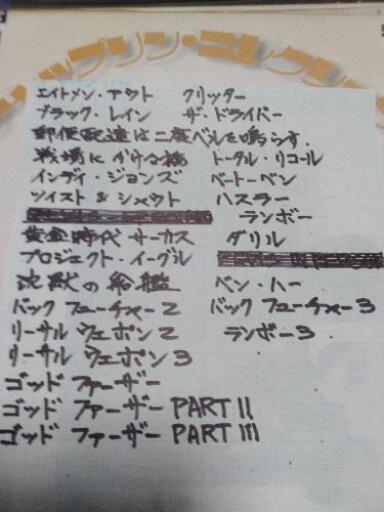 プリン・コレクシ
エイトメン・アウト　クリッター
ブラック・レイン　ザ・ドライバー
郵便配達は二度ベルを鳴らす
戦場にかける橋　トータル・リコール
インディ・ジョンズ　ベートーベン
ツイスト & シャウト　ハスラー
ランボー
黄金時代 サーカス　ダリル
プロジェクト・イーグル
沈黙の船艦　ベン・ハー
バック フューチャー2　バック フューチャー3
リーサル ウェポン2　ランボー3
リーサル ウェポン3
ゴッド ファーザー
ゴッド ファーザー PART II
ゴッド ファーザー PART III